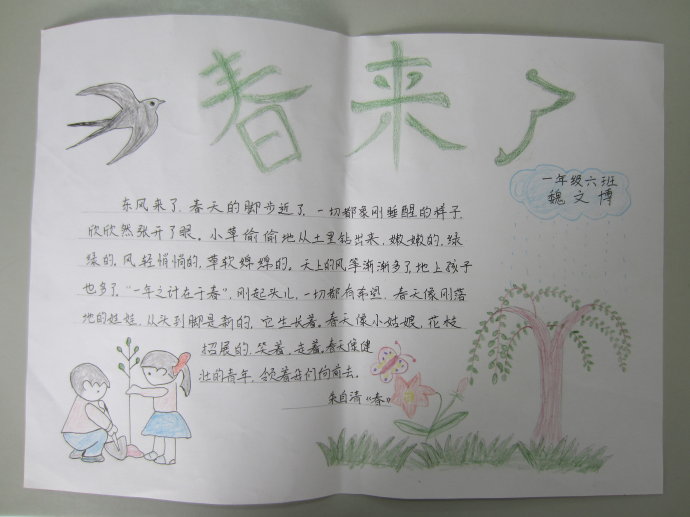 春来了
一年级六班
魏文博
东风来了，春天的脚步近了，一切都象刚睡醒的样子，
欣欣然张开了眼。小草偷偷地从土里钻出来，嫩嫩的，绿
绿的。风轻悄悄的，草软绵绵的。天上的风筝渐渐多了，地上孩子
也多了。“一年之计在于春”，刚起头儿，一切都有希望，春天像刚落
地的娃娃，从头到脚是新的，它生长着。春天像小姑娘，花枝
招展的，笑着，走着。春天像健
壮的青年，领着我们向前去。
朱自清《春》